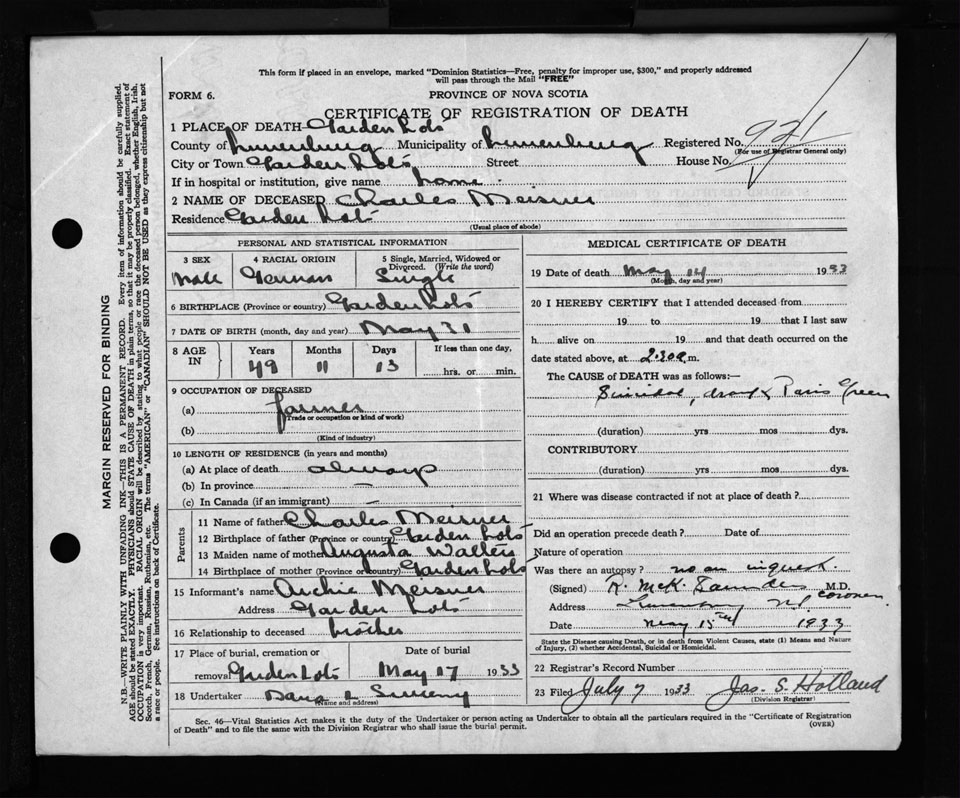 This form if placed in an envelope, marked "Dominion Statistics—Free, penalty for improper use, $300," and properly addressed
will pass through the Mail "FREE"
FORM 6. PROVINCE OF NOVA SCOTIA
CERTIFICATE OF REGISTRATION OF DEATH
1 PLACE OF DEATH— Garden Lots
County of Lunenburg Municipality of Lunenburg Registered No. 921
(For use of Registrar General only)
City or Town Garden Lots Street House No.
If in hospital or institution, give name home
2 NAME OF DECEASED Charles Meisner
Residence Garden Lots
(Usual place of abode)
PERSONAL AND STATISTICAL INFORMATION
3 SEX 4 RACIAL ORIGIN 5 Single, Married, Widowed or
Divorced. (Write the word)
Male German Single
6 BIRTHPLACE (Province or country) Garden Lots
7 DATE OF BIRTH (month, day and year) May 31
8 AGE IN Years Months Days If less than one day,
49 11 13 hrs. or min.
9 OCCUPATION OF DECEASED
(a) farmer
(Trade or occupation or kind of work)
(b)
(Kind of industry)
10 LENGTH OF RESIDENCE (in years and months)
(a) At place of death always
(b) In province —
(c) In Canada (if an immigrant) —
Parents
11 Name of father Charles Meisner
12 Birthplace of father (Province or country) Garden Lots
13 Maiden name of mother Augusta Walters
14 Birthplace of mother (Province or country) Garden Lots
15 Informant's name Archie Meisner
Address Garden Lots
16 Relationship to deceased brother
17 Place of burial, cremation or Date of burial
removal Garden Lots May 17 1933
18 Undertaker Dana L Sweeny
(Name and address)
MEDICAL CERTIFICATE OF DEATH
19 Date of death May 14 1933
(Month, day and year)
20 I HEREBY CERTIFY that I attended deceased from
19 to 19 that I last saw
h alive on 19 and that death occurred on the
date stated above, at 2.30 a, m.
The CAUSE of DEATH was as follows:—
Suicidal, Paris Green
(duration) yrs mos dys.
CONTRIBUTORY
(duration) yrs mos dys.
21 Where was disease contracted if not at place of death?
Did an operation precede death? Date of
Nature of operation
Was there an autopsy? no an inquest.
(Signed) R. McK Saunders M.D.
coroner
Address Lunenburg N.S.
Date May 15th 1933
State the Disease causing Death, or in death from Violent Causes, state (1) Means and Nature
of Injury, (2) whether Accidental, Suicidal or Homicidal.
22 Registrar's Record Number
23 Filed July 7 1933 Jas. S. Holland
(Division Registrar)
Sec. 46—Vital Statistics Act makes it the duty of the Undertaker or person acting as Undertaker to obtain all the particulars required in the "Certificate of Registration
of Death" and to file the same with the Division Registrar who shall issue the burial permit. (OVER)
MARGIN RESERVED FOR BINDING
N.B.—WRITE PLAINLY WITH UNFADING INK—THIS IS A PERMANENT RECORD. Every item of information should be carefully supplied.
AGE should be stated EXACTLY. PHYSICIANS should STATE CAUSE OF DEATH in plain terms, so that it may be properly classified. Exact statement of
OCCUPATION is very important. RACIAL ORIGIN will be described by stating to what people or race the deceased person belonged, whether English, Irish,
Scotch, French, German, Russian, Ruthenian, etc. The terms "AMERICAN" or "CANADIAN" SHOULD NOT BE USED as they express citizenship but not
a race or people. See instructions on back of Certificate.